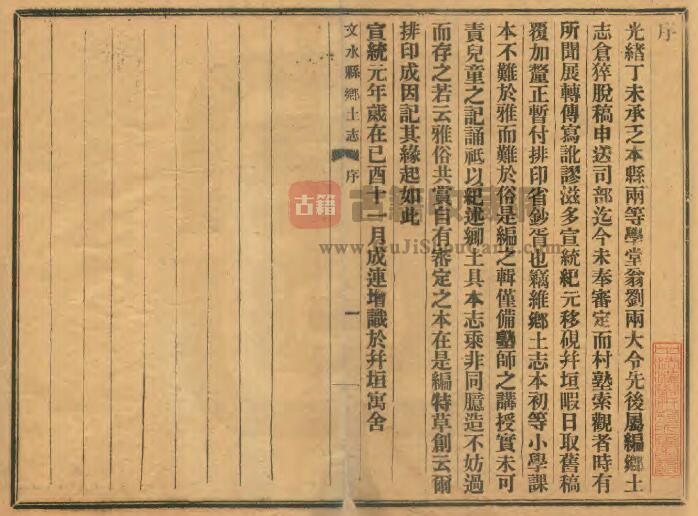 序
光緒丁未承乏本縣兩等學堂翁劉兩大令先後屬編鄉土
志倉猝脫稿申送司部迄今未奉審定而村塾索觀者時有
所聞展轉傳寫訛謬滋多宣統紀元移硯幷垣暇日取舊稿
覆加釐正暫付排印省鈔胥也竊維鄉土志本初等小學課
本不難於雅而難於俗是編之輯僅備塾師之講授實未可
責兒童之記誦祗以紀述鄉土具本志乘非同臆造不妨過
而存之若云雅俗共賞自有審定之本在是編特草創云爾
排印成因記其緣起如此
宣統元年歲在己酉十一月成連增識於幷垣寓舍
文水縣鄉土志 序 一
古籍
www.GuJiShouCang.com